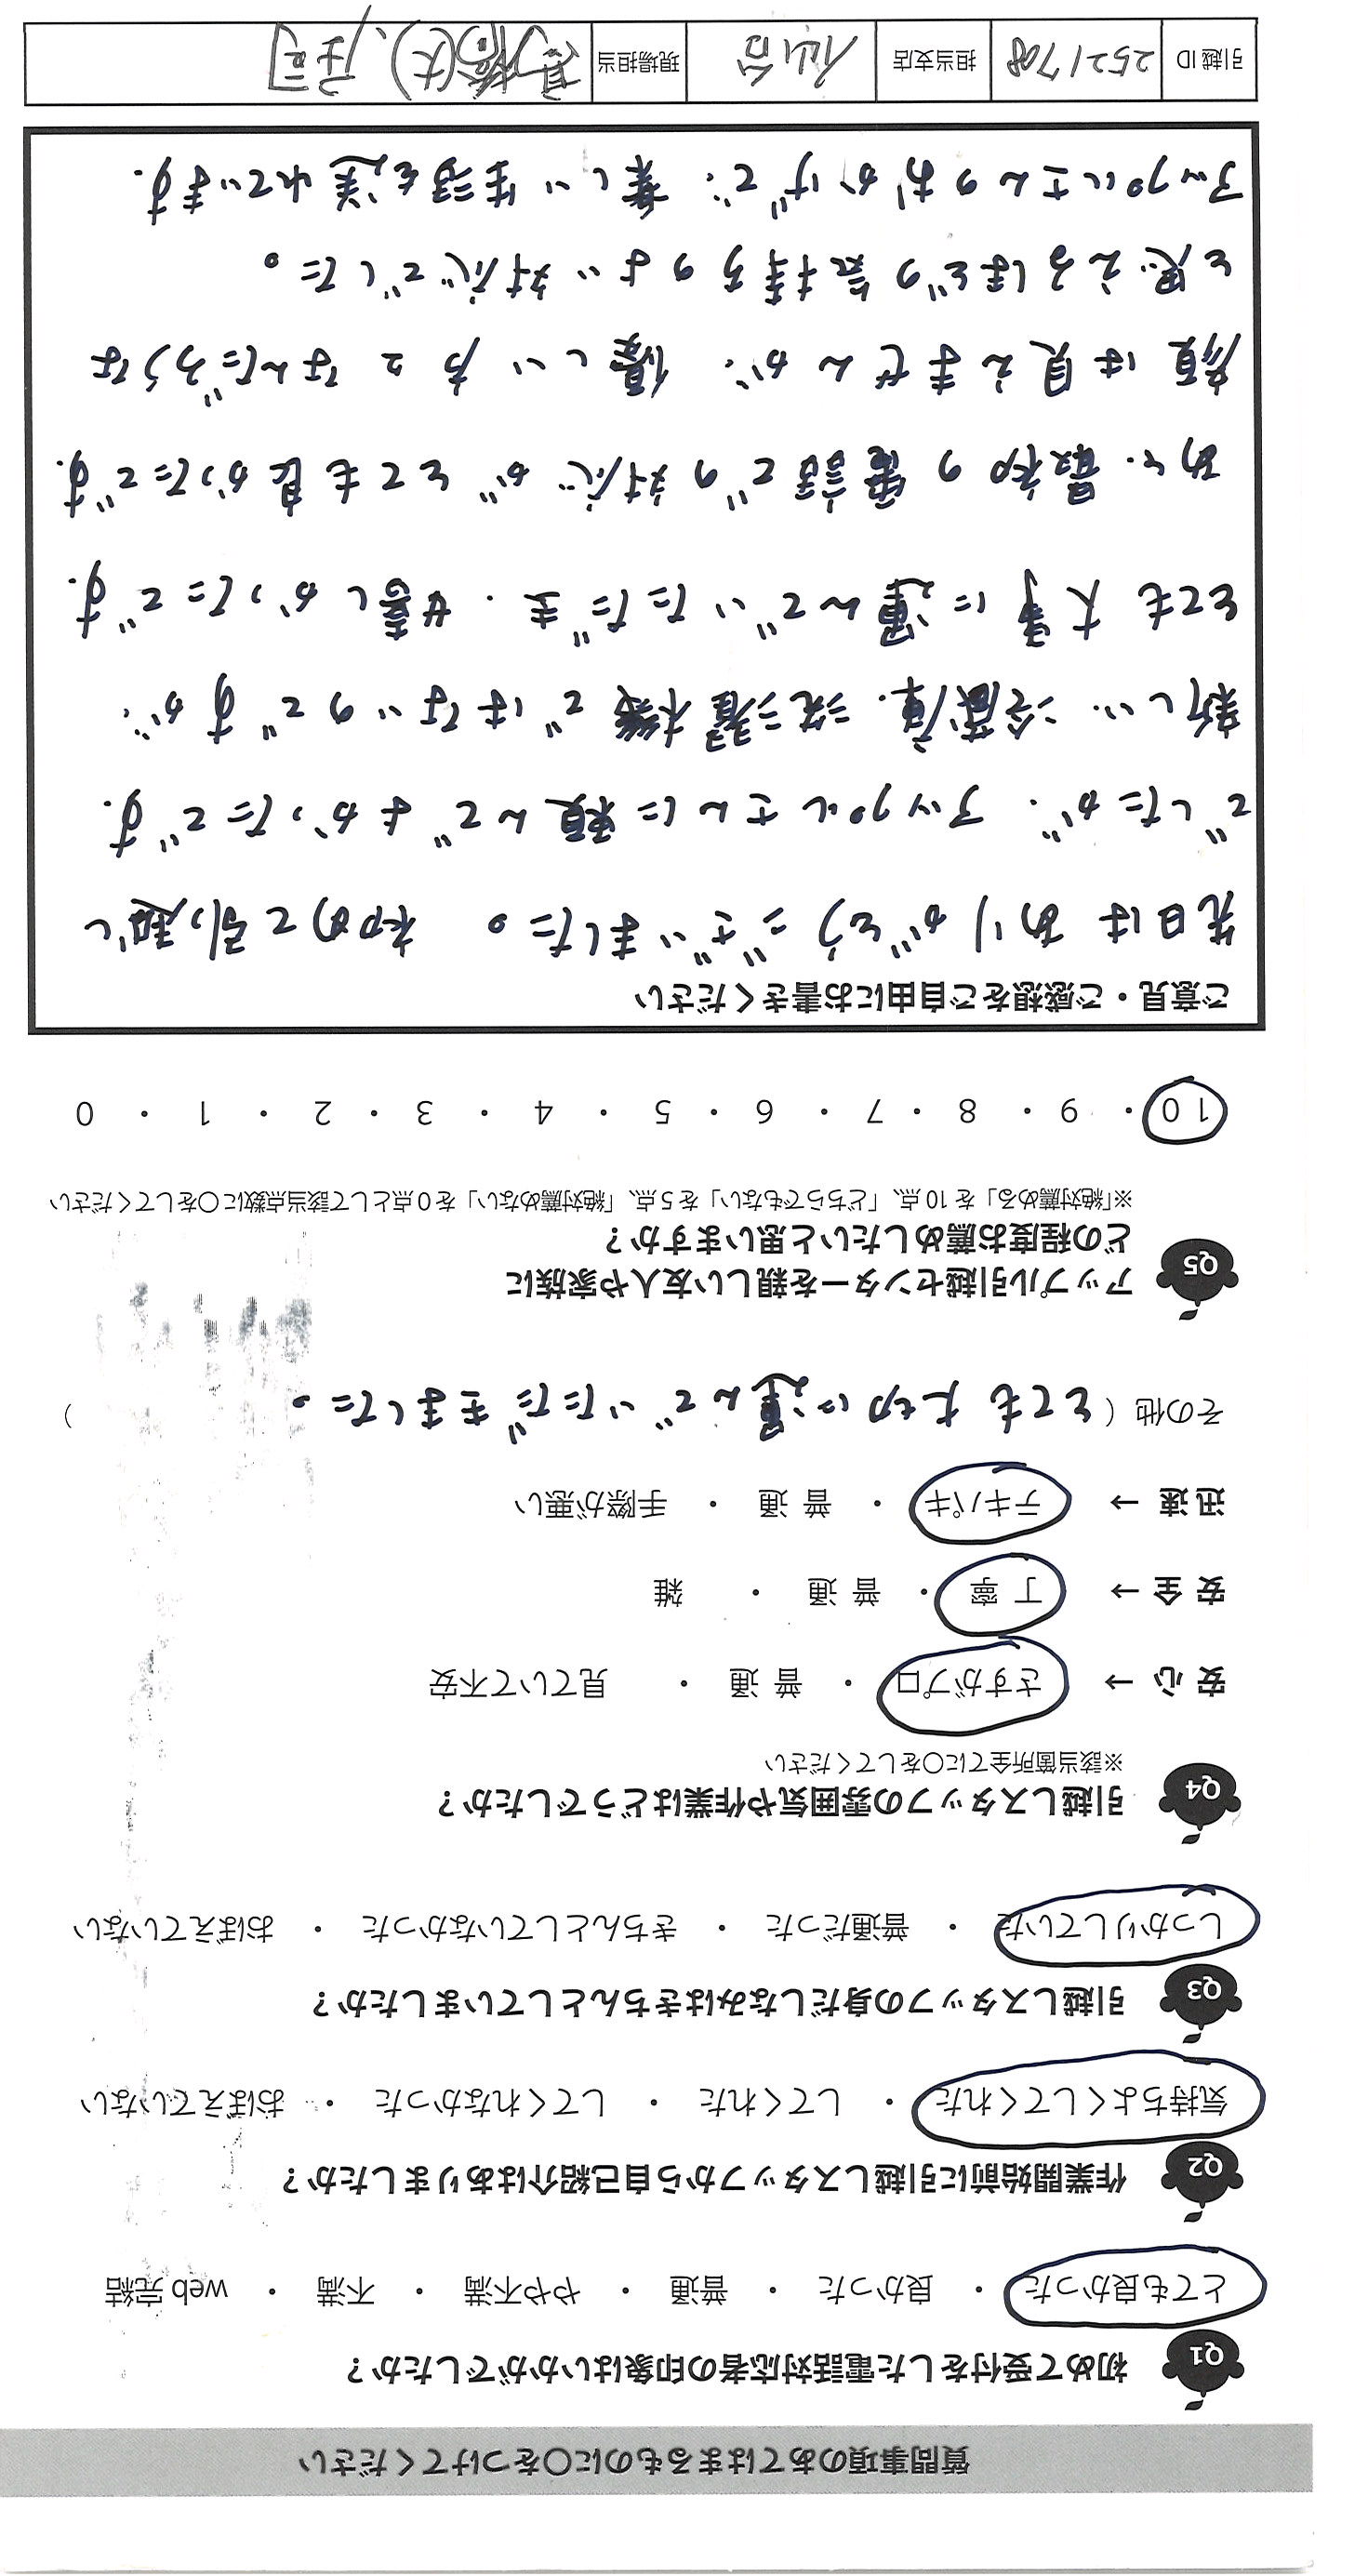 質問事項のあてはまるものに〇をつけてください
Q1 初めて受付をした電話対応者の印象はいかがでしたか？
とても良かった ・ 良かった ・ 普通 ・ やや不満 ・ 不満 ・ web 完結
Q2 作業開始前に引越しスタッフから自己紹介はありましたか？
気持ちよくしてくれた ・ してくれた ・ してくれなかった ・ おぼえていない
Q3 引越しスタッフの身だしなみはきちんとしていましたか？
しっかりしていた ・ 普通だった ・ きちんとしていなかった ・ おぼえていない
Q4 引越しスタッフの雰囲気や作業はどうでしたか？
※該当箇所全てに〇をしてください
安心 → さすがプロ ・ 普通 ・ 見ていて不安
安全 → 丁寧 ・ 普通 ・ 雑
迅速 → テキパキ ・ 普通 ・ 手際が悪い
その他（とても大切に運んでいただきました。）
Q5 アップル引越センターを親しい友人や家族に
どの程度お薦めしたいと思いますか？
※「絶対薦める」を 10 点、「どちらでもない」を 5 点、「絶対薦めない」を 0 点として該当点数に〇をしてください
10 ・ 9 ・ 8 ・ 7 ・ 6 ・ 5 ・ 4 ・ 3 ・ 2 ・ 1 ・ 0
ご意見・ご感想をご自由にお書きください
先日はありがとうございました。初めて引っ越し
でしたが、アップルさんに頼んでよかったです。
新しい冷蔵庫、洗濯機ではないのですが、
とても大事に運んでいただき、嬉しかったです。
あと、最初の電話での対応がとても良かったです。
顔は見えませんが、優しい方なんだろうな
と思えるほどの気持ちのよい対応でした。
アップルさんのおかげで、楽しい生活を送れています。
引越 ID 2521708 担当支店 仙台 現場担当 髙橋(大)、庄司